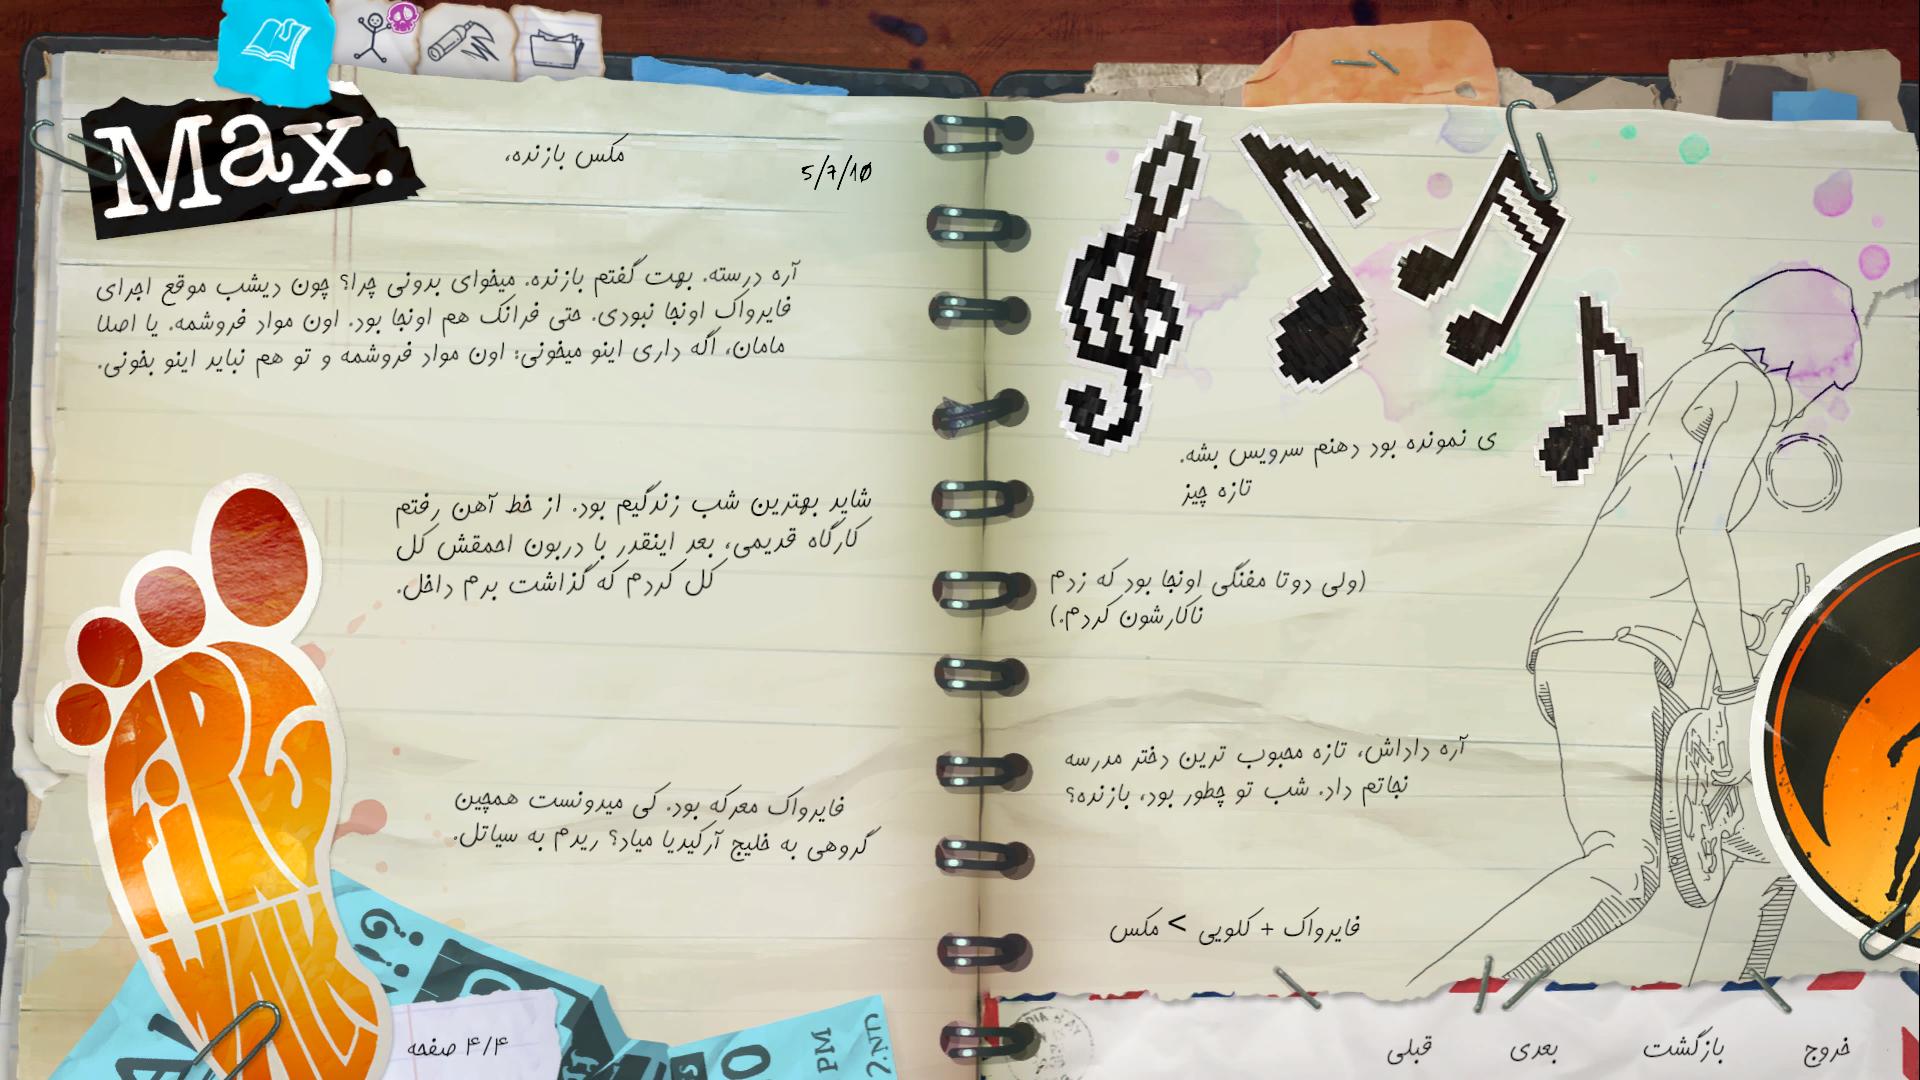 Max.
مکس بازنده،
5/7/10
آره درسته. بهت گفتم بازنده. میخوای بدونی چرا؟ چون دیشب موقع اجرای
فایرواک اونجا نبودی. حتی فرانک هم اونجا بود. اون مواد فروشمه. یا اصلا
مامان، اگه داری اینو میخونی: اون مواد فروشمه و تو هم نباید اینو بخونی.
شاید بهترین شب زندگیم بود. از خط آهن رفتم
کارگاه قدیمی، بعد اینقدر با دربون احمقش کل
کل کردم که گذاشت برم داخل.
فایرواک معرکه بود. کی میدونست همچین
گروهی به خلیج آرکیدیا میاد؟ ریدم به سیاتل.
FIRE
WALK
PM
۴/۴ صفحه
ی نمونده بود دهنم سرویس بشه.
تازه چیز
(ولی دوتا مفنگی اونجا بود که زدم
ناکارشون کردم.)
آره داداش، تازه محبوب ترین دختر مدرسه
نجاتم داد. شب تو چطور بود، بازنده؟
فایرواک + کلویی > مکس
قبلی
بعدی
بازگشت
خروج